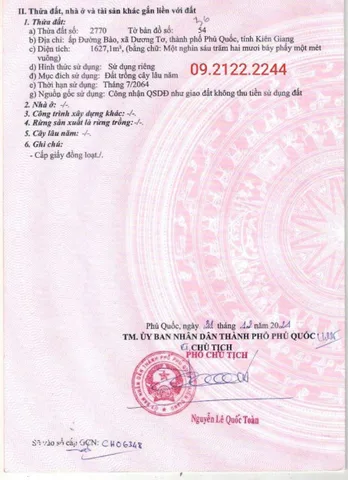 II. Thửa đất, nhà ở và tài sản khác gắn liền với đất
1. Thửa đất:
a) Thửa đất số: 2770 Tờ bản đồ số: 54
b) Địa chỉ: ấp Đường Bào, xã Dương Tơ, thành phố Phú Quốc, tỉnh Kiên Giang
c) Diện tích: 1627,1m², (bằng chữ: Một nghìn sáu trăm hai mươi bảy phẩy một mét
vuông)
d) Hình thức sử dụng: Sử dụng riêng
09.2122.2244
đ) Mục đích sử dụng: Đất trồng cây lâu năm
e) Thời hạn sử dụng: Tháng 7/2064
g) Nguồn gốc sử dụng: Công nhận QSDĐ như giao đất không thu tiền sử dụng đất
2. Nhà ở: -/-.
3. Công trình xây dựng khác: -/-.
4. Rừng sản xuất là rừng trồng: -/-.
5. Cây lâu năm: -/-.
6. Ghi chú:
- Cấp giấy đồng loạt./.
Phú Quốc, ngày tháng năm
TM. ỦY BAN NHÂN DÂN THÀNH PHỐ PHÚ QUỐC
CHỦ TỊCH
PHÓ CHỦ TỊCH
Nguyễn Lê Quốc Toàn
Số vào sổ cấp GCN: CH06348